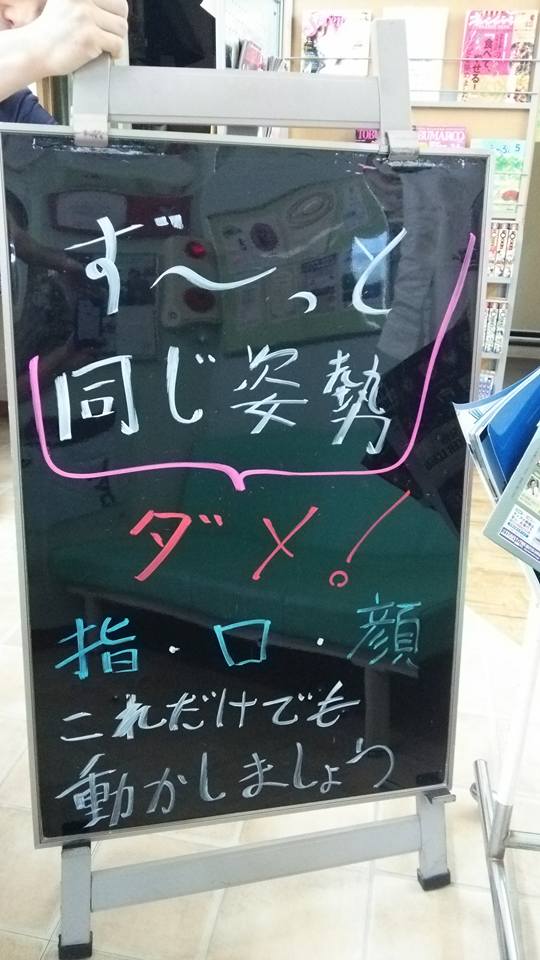 ず〜っと
同じ姿勢
ダメ!
指・口・顔
これだけでも
動かしましょう